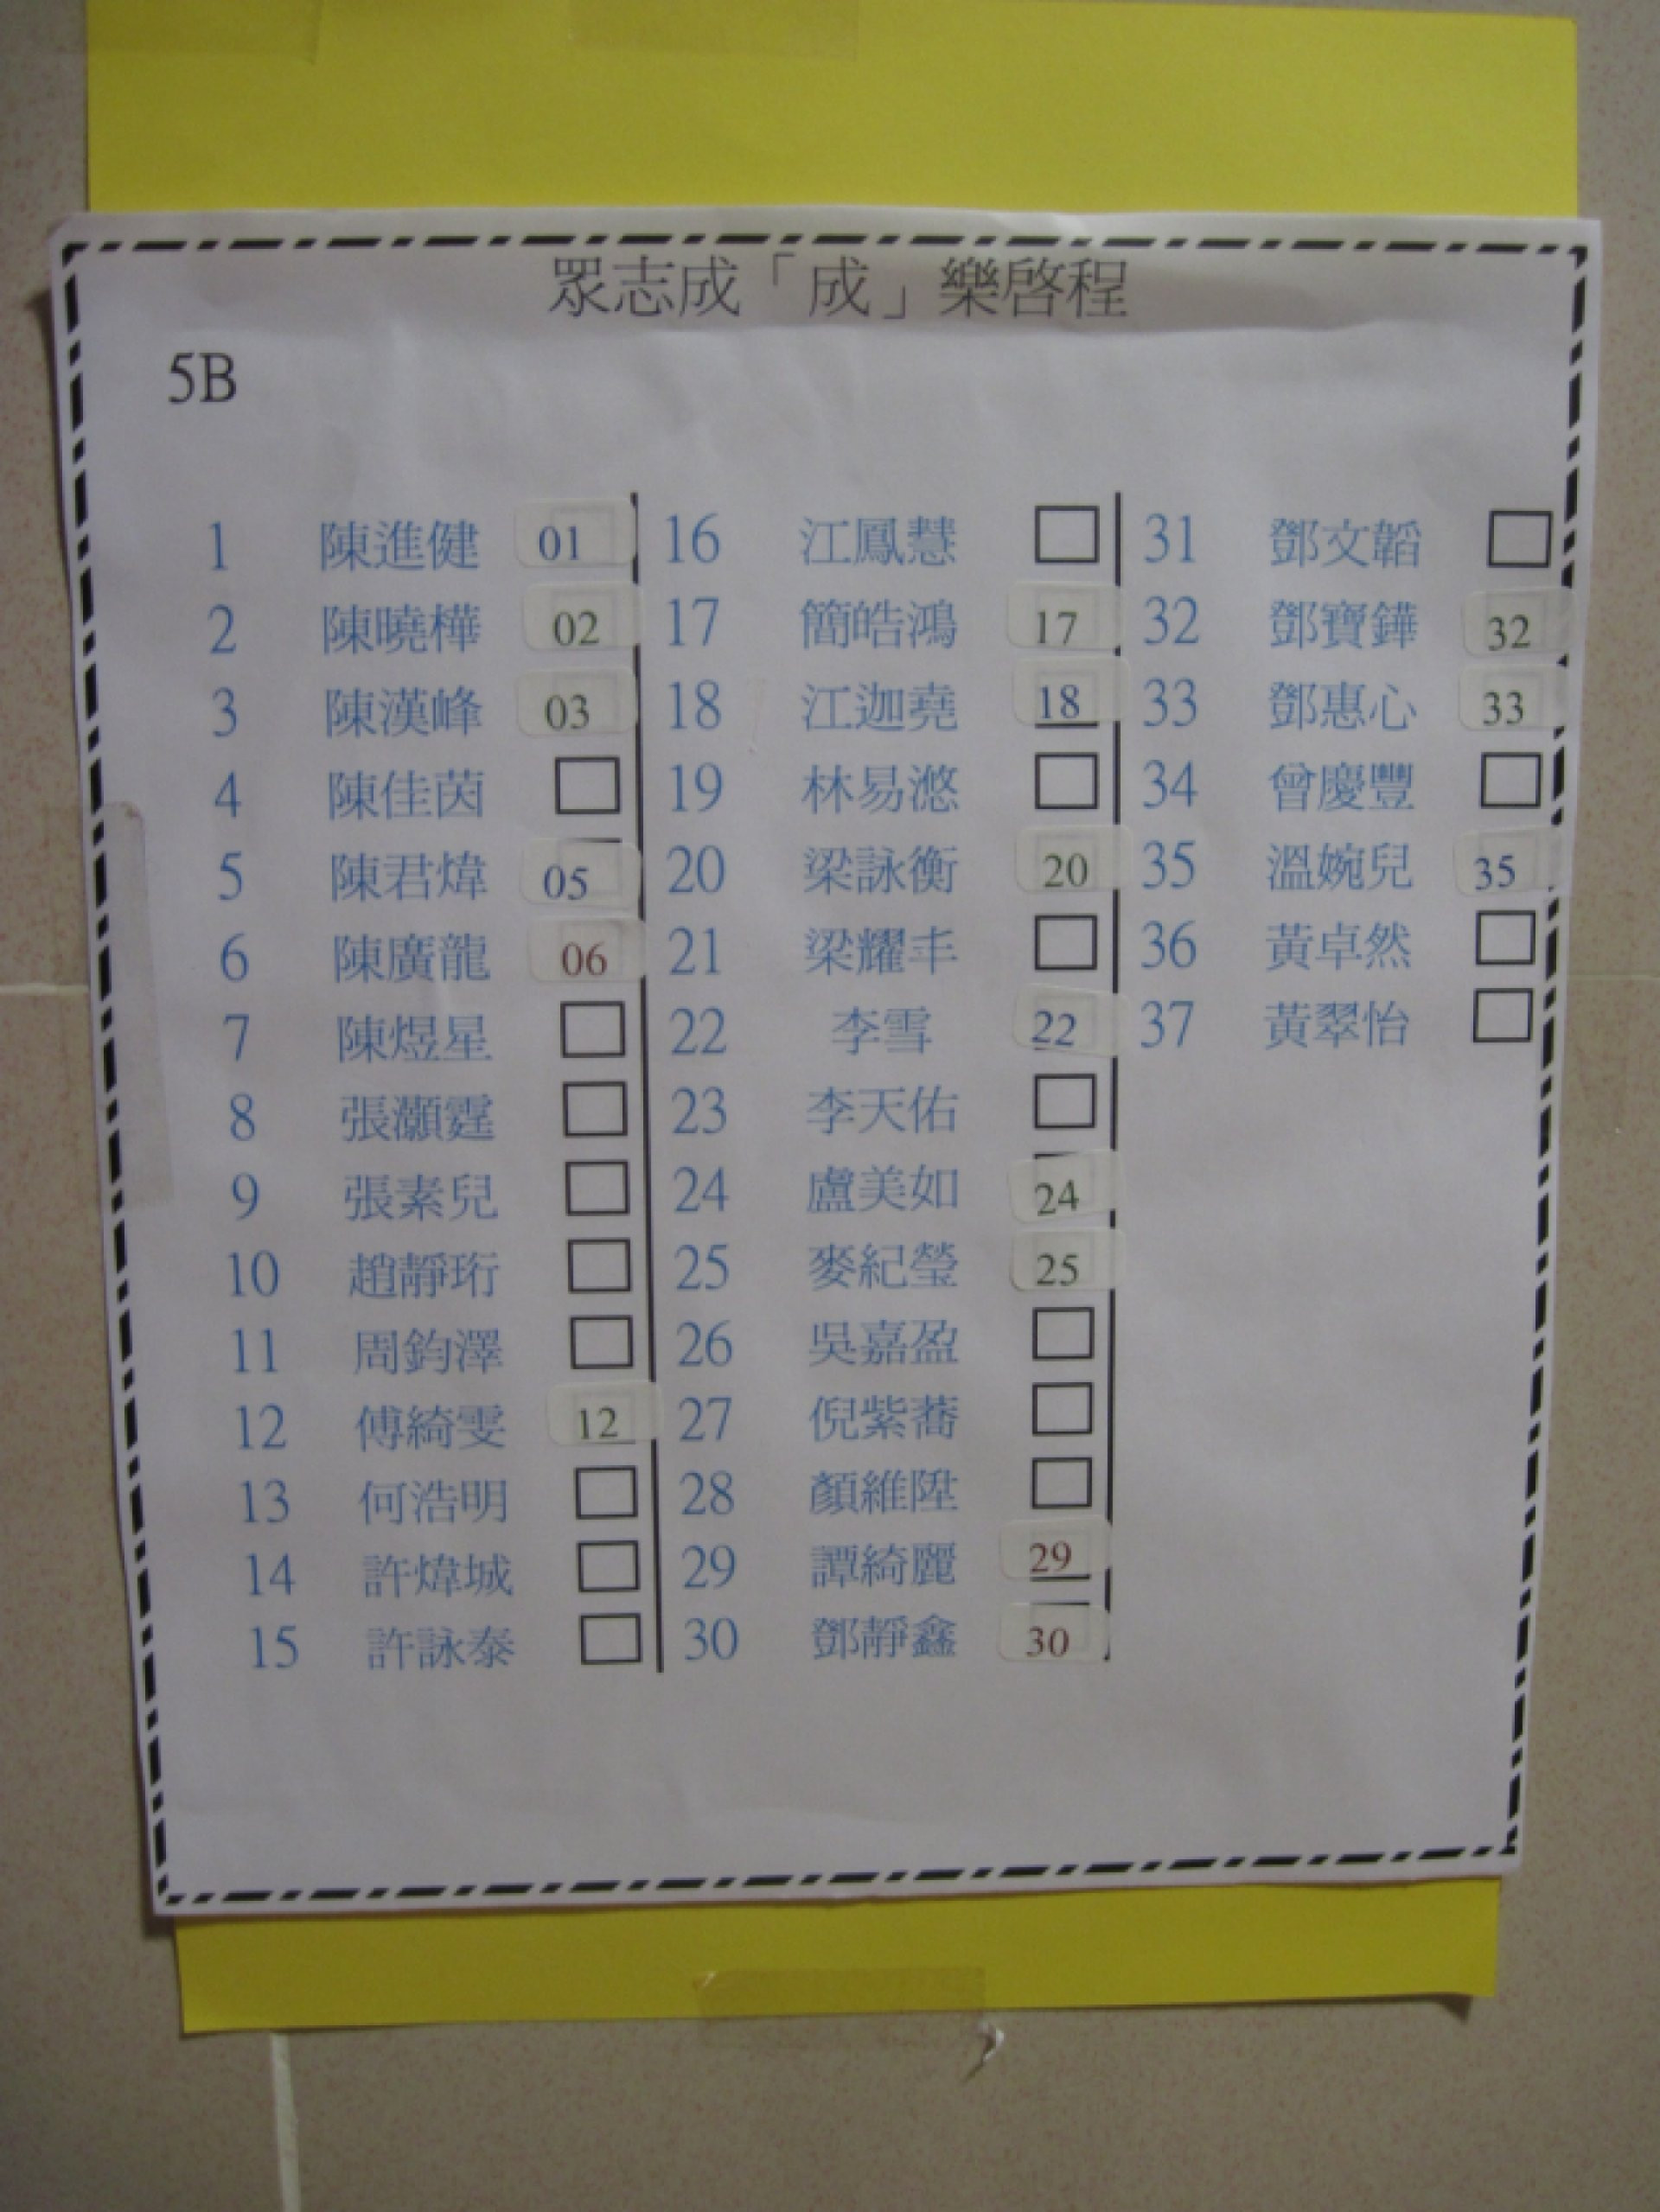 眾志成「成」樂啓程
5B
1 陳進健 01
2 陳曉樺 02
3 陳漢峰 03
4 陳佳茵
5 陳君煒 05
6 陳廣龍 06
7 陳煜星
8 張灝霆
9 張素兒
10 趙靜珩
11 周鈞澤
12 傅綺雯 12
13 何浩明
14 許煒城
15 許詠泰
16 江鳳慧
17 簡皓鴻 17
18 江迦堯 18
19 林易滺
20 梁詠衡 20
21 梁耀丰
22 李雪 22
23 李天佑
24 盧美如 24
25 麥紀瑩 25
26 吳嘉盈
27 倪紫蕎
28 顏維陞
29 譚綺麗 29
30 鄧靜鑫 30
31 鄧文韜
32 鄧寶鏵 32
33 鄧惠心 33
34 曾慶豐
35 溫婉兒 35
36 黃卓然
37 黃翠怡